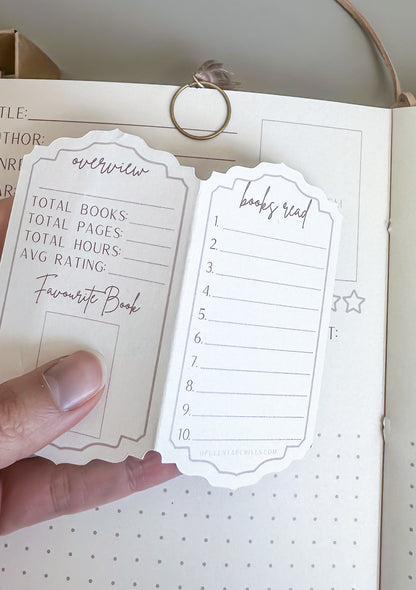 TLE:
THOR:
overview
TOTAL BOOKS:
TOTAL PAGES:
TOTAL HOURS:
AVG RATING:
Favourite Book
books read
1.
2.
3.
4.
5.
6.
7.
8.
9.
10.
T: